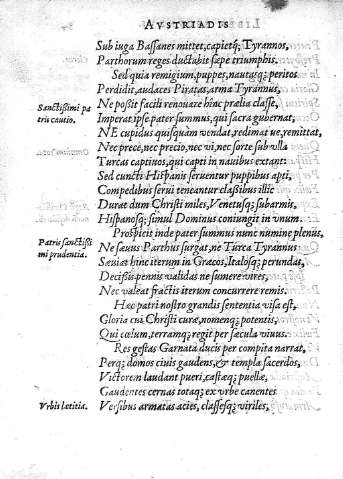 AVSTRIADIS
Sub iuga Bassanes mittet, capietq; Tyrannos,
Parthorum reges ductabit sæpe triumphis.
Sed quia remigium, puppes, nautasq; peritos
Perdidit, audaces Piratas, arma Tyrannus,
Sanctissimi pa
tris cautio.
Ne possit facili renouare hinc prælia classe,
Imperat ipse pater summus, qui sacra gubernat,
NE cupidus quisquàm vendat, redimat ue, remittat,
Nec prece, nec precio, nec vi, nec sorte sub vlla
Turcas captiuos, qui capti in nauibus extant:
Sed cuncti Hispanis seruentur puppibus apti,
Compedibus serui teneantur classibus illic
Durat dum Christi miles, Venetusq; subarmis,
Hispanosq; simul Dominus coniungit in vnum.
Prospicis inde pater summus nunc numine plenus,
Patris sanctissi
mi prudentia.
Ne sæuus Parthus surgat, ne Turca Tyrannus
Sæuiat hinc iterum in Græcos, Italosq; perundas,
Decissis pennis validas ne sumere vires,
Nec valeat fractis iterum concurrere remis.
Hæc patri nostro grandis sententia visa est,
Gloria cui Christi curæ, nomenq; potentis,
Qui cœlum, terramq; regit per sæcula viuus.
Res gestas Garnata ducis per compita narrat,
Perq; domos ciuis gaudens, & templa sacerdos,
Victorem laudant pueri, castæq; puellæ,
Gaudentes cernas totaq; ex vrbe canentes
Vrbis lætitia.
Versibus armatas acies, classesq; viriles,